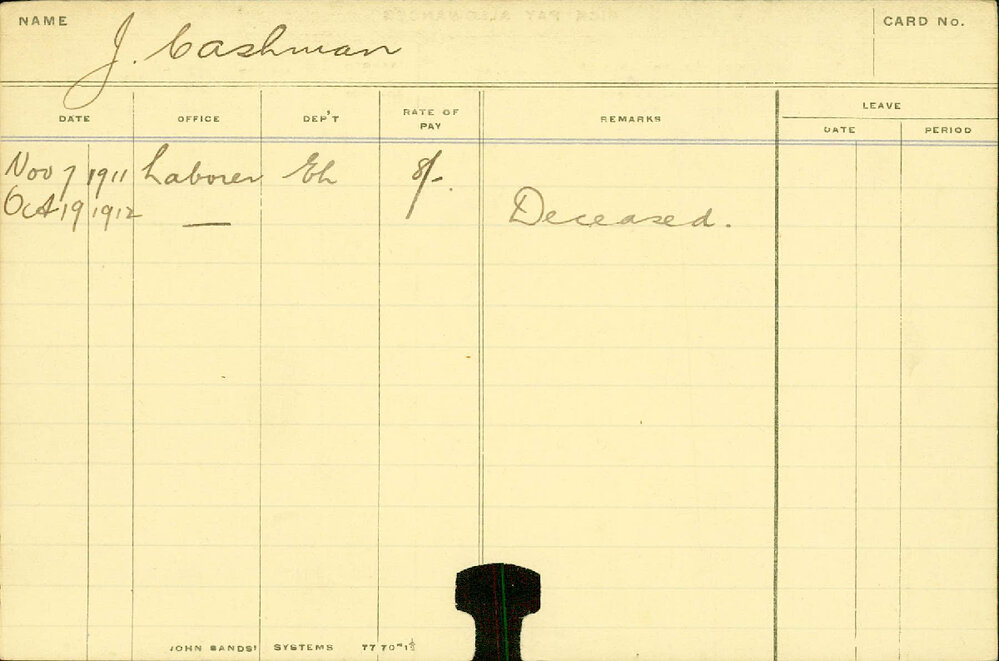 NAME J. Cashman CARD No.
DATE OFFICE DEP'T RATE OF PAY REMARKS LEAVE
DATE PERIOD
Nov 7 1911 Laborer Eh 8/-.
Oct 19 1912 — Deceased.
JOHN SANDS' SYSTEMS